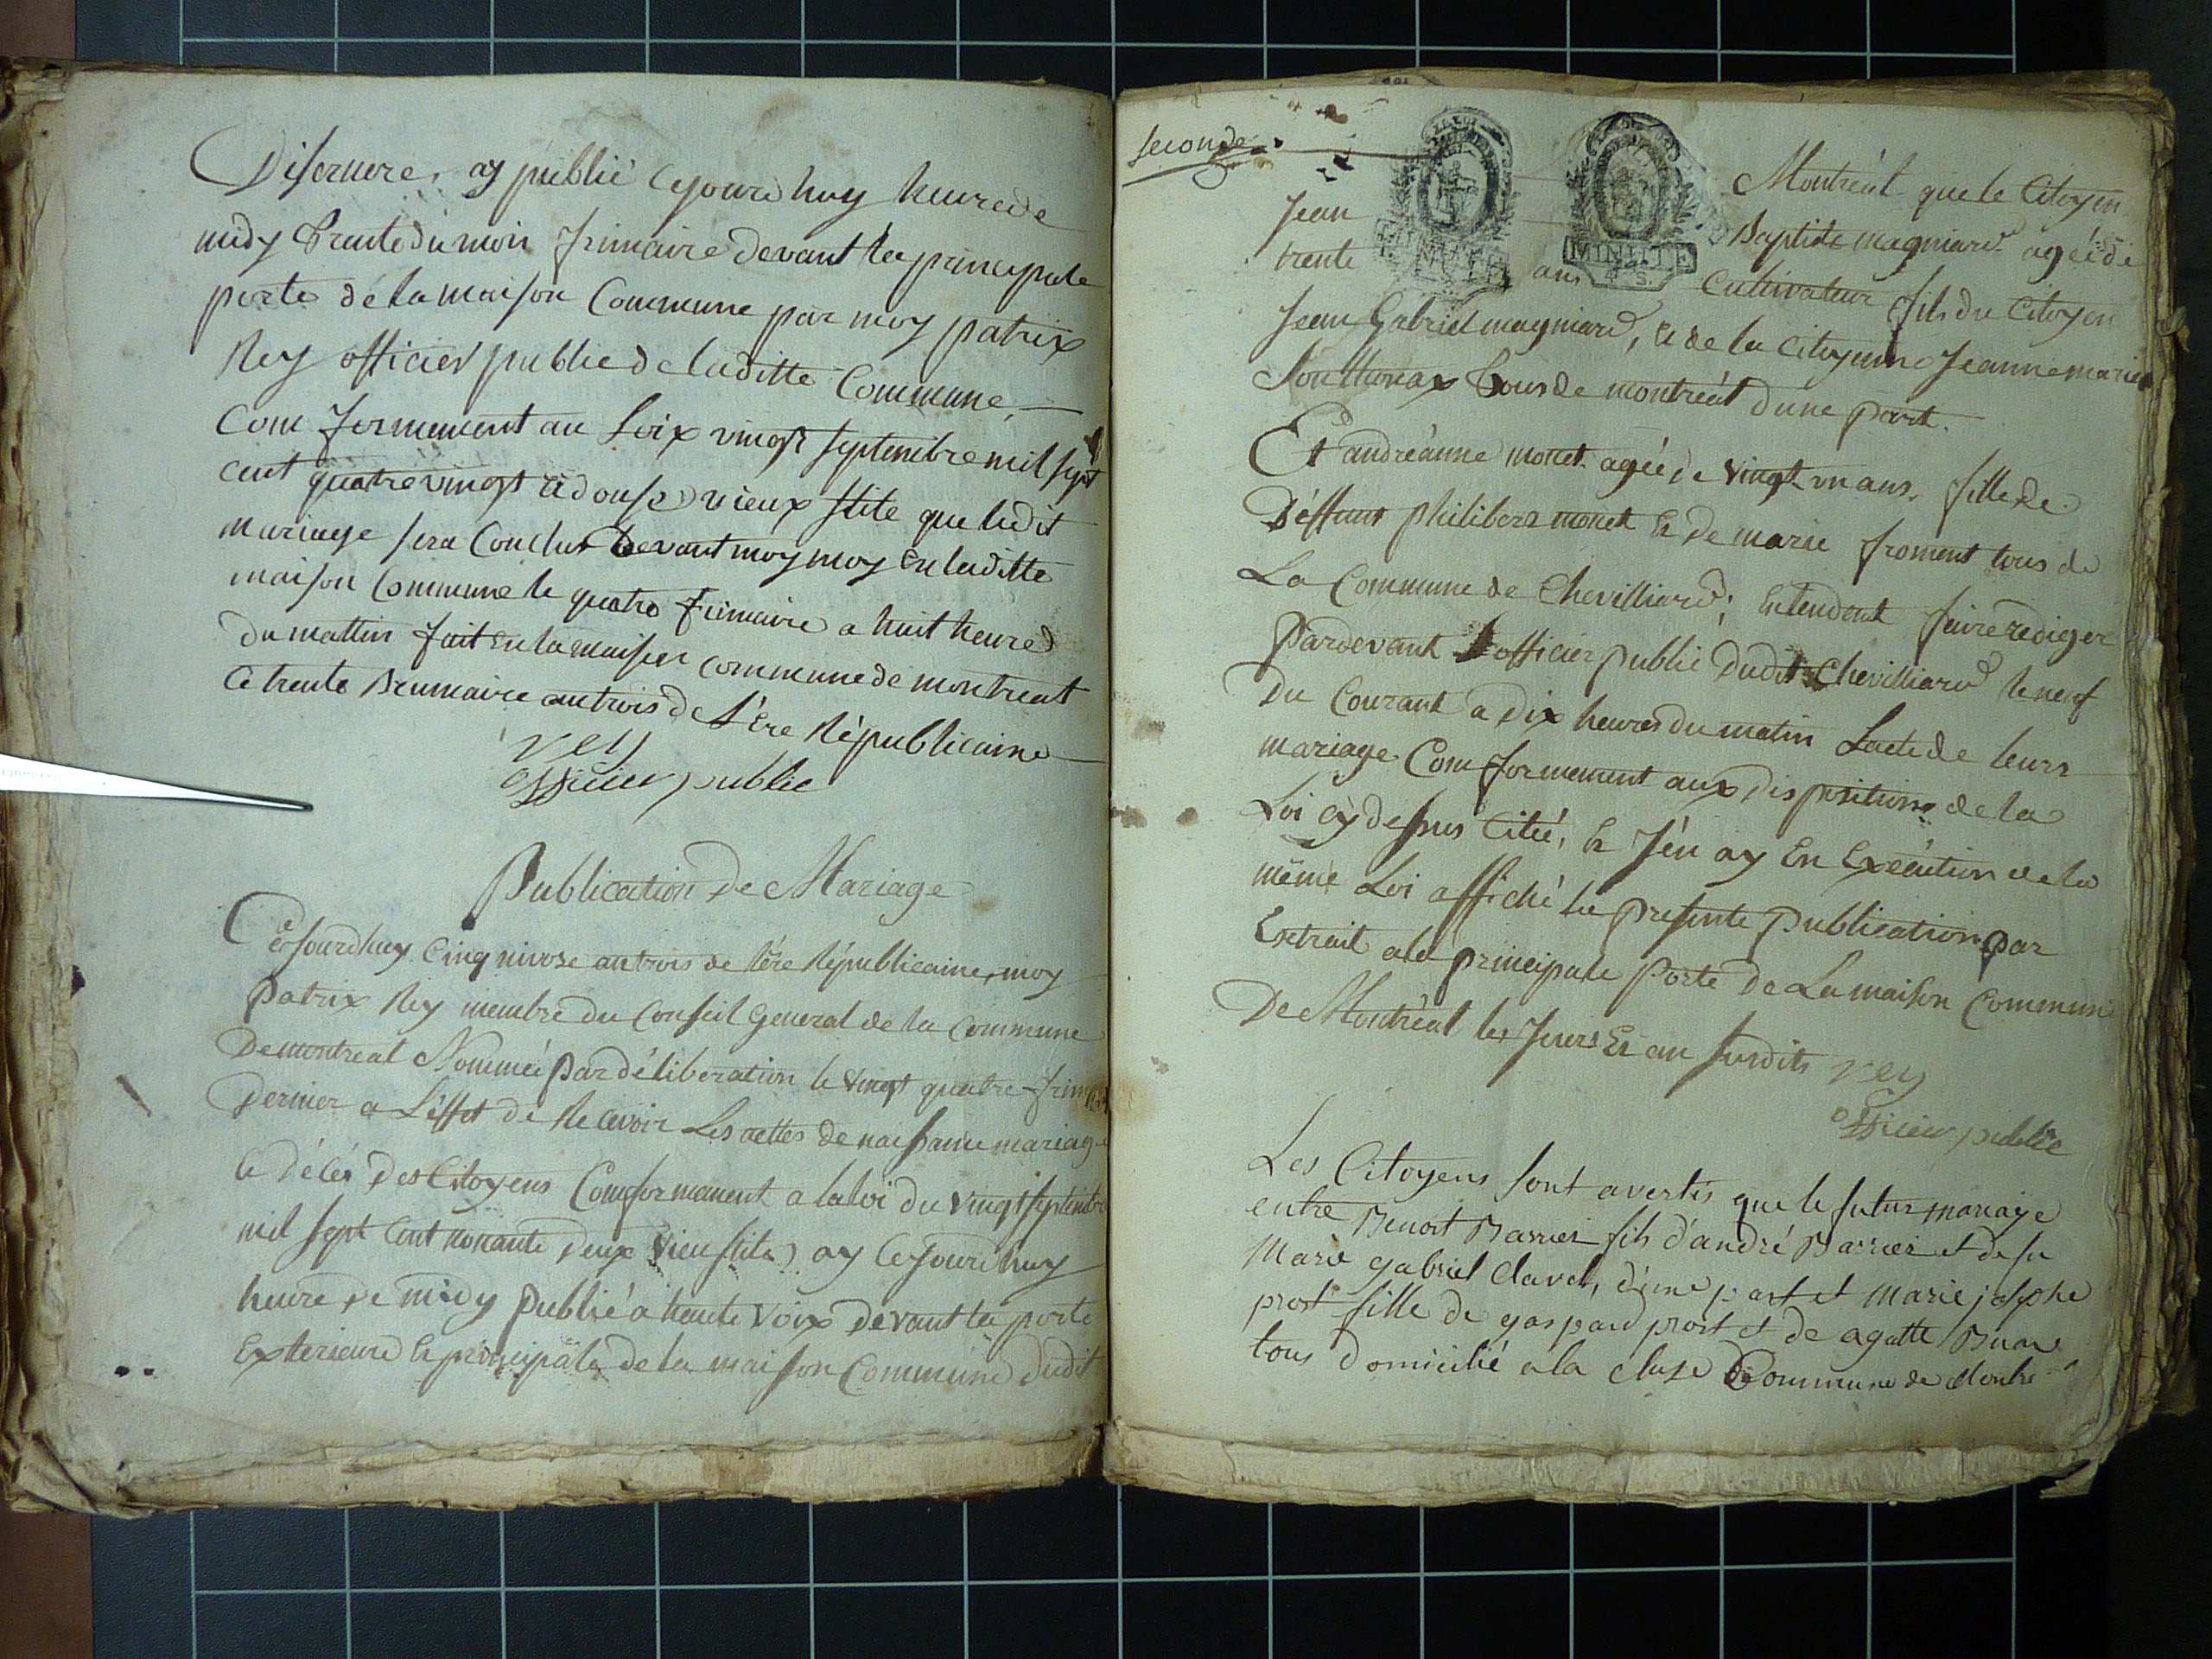 Disernore, ay publié cejourdhuy heure de
midy trente du mois frimaire devant la principale
porte de la maison Commune par moy patrix
Rey officier public de laditte Commune,
Comformement au Loix vingt septembre mil sept
cent quatre vingt et douse vieux stile que ledit
mariage sera Conclut devant moy moy en laditte
maison Commune le quatre frimaire a huit heures
du mattin fait en la maison commune de montreal
Ce trente Brumaire an trois de l'Ere Républicaine
rey
officier public
Publication de Mariage
Cejourdhuy Cinq nivose an trois de l'ére Républicaine, moy
Patrix Rey membre du Conseil General de la Commune
De montreal Nommé par déliberation le vingt quatre frimaire
Dernier a L'effet de Recevoir Les acttes de naissance mariage
Et décés des Citoyens Comformement a la loi du vingt septembre
mil sept Cent nonante Deux vieu stile, ay Cejourdhuy
heure de midy Publié a haute Voix devant la porte
Exterieure Et principale de la maison Commune dudit
seconde
Montréal que le Citoyen
Jean Baptiste magniard agé de
trente ans Cultivateur fils du Citoyen
MINUTE
Jean Gabriel magniard, Et de la Citoyenne Jeanne marie
Sonthonax tous de montréal d'une part.
Et andréanne monet agée de vingt un ans, fille de
Deffunt philibert monet Et de marie froment tous de
La Commune de Chevilliard; Entendent faire rediger
Pardevant L'officier public dudit Chevilliard le neuf
Du Courant a dix heures du matin Lacte de leurs
mariage Comformement aux dispositions de la
Loi cy dessus Citée, Et J'en ay En Exécution de la
même Loi affiché la presente publication par
Extrait a la principale Porte De La maison Commune
De Montréal les Jours Et an susdits rey
officier public
Les Citoyens sont avertis que le futur mariage
entre Benoit Barrier fils d'andré Barrier et de fu
Marie gabriel Clavel, d'une part et Marie josephe
prost fille de gaspard prost et de agatte
tous domicilié a la cluse Commune de Montre